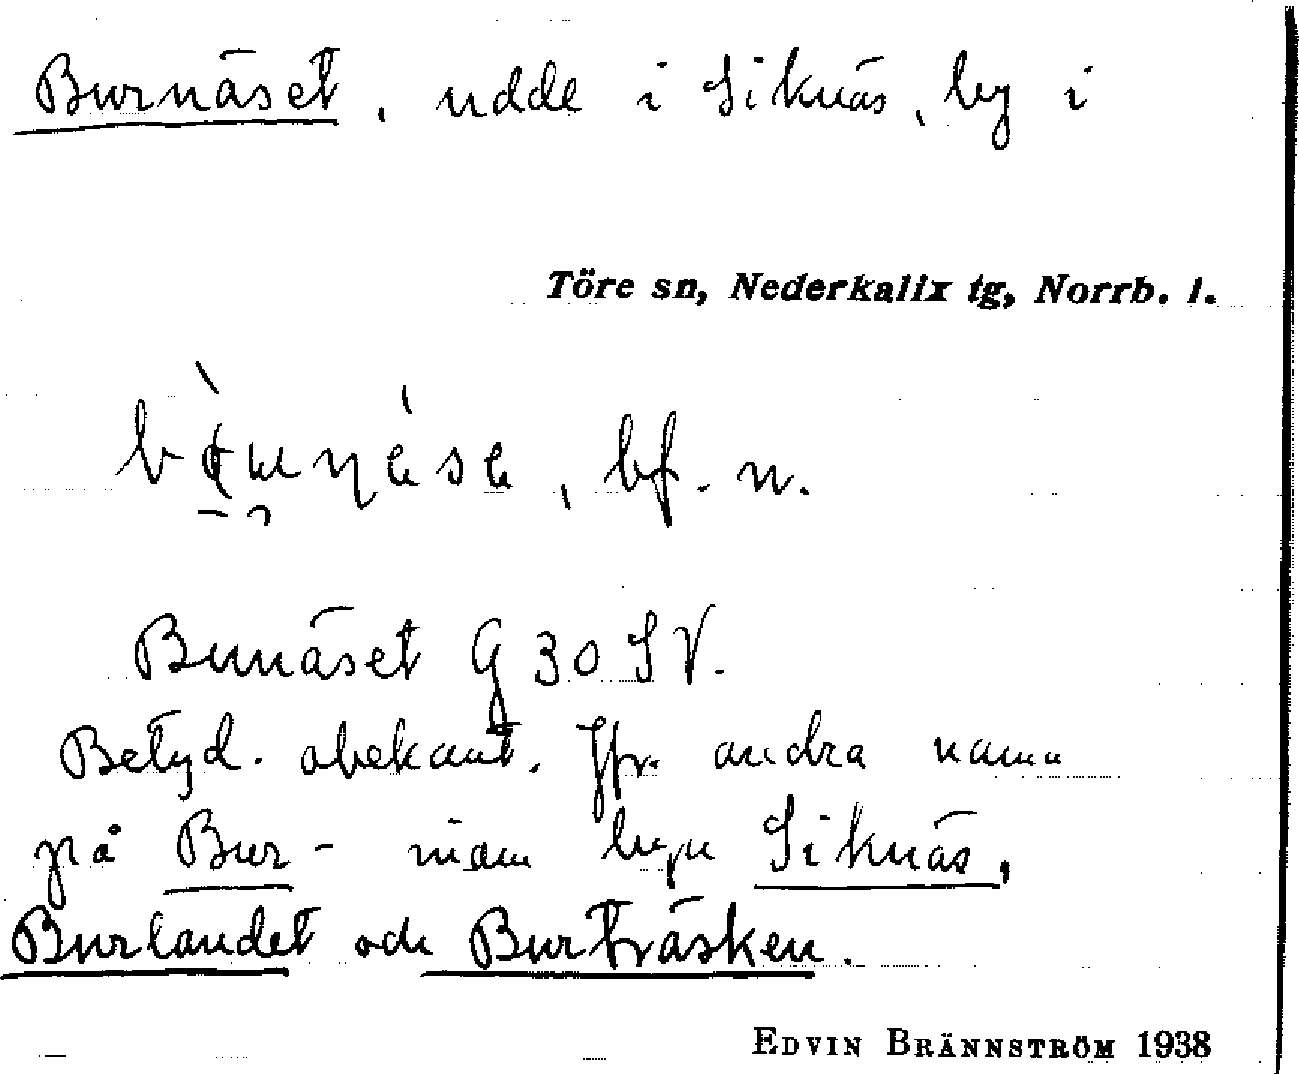 Burnäset, udde i Siknäs, by i
Töre sn, Nederkalix tg, Norrb. l.
bf. n.
Bunäset G 30 SV.
Betyd. obekant. Jfr. andra namn
på Bur- inom byn Siknäs,
Burlandet och Burträsken.
EDVIN BRÄNNSTRÖM 1938